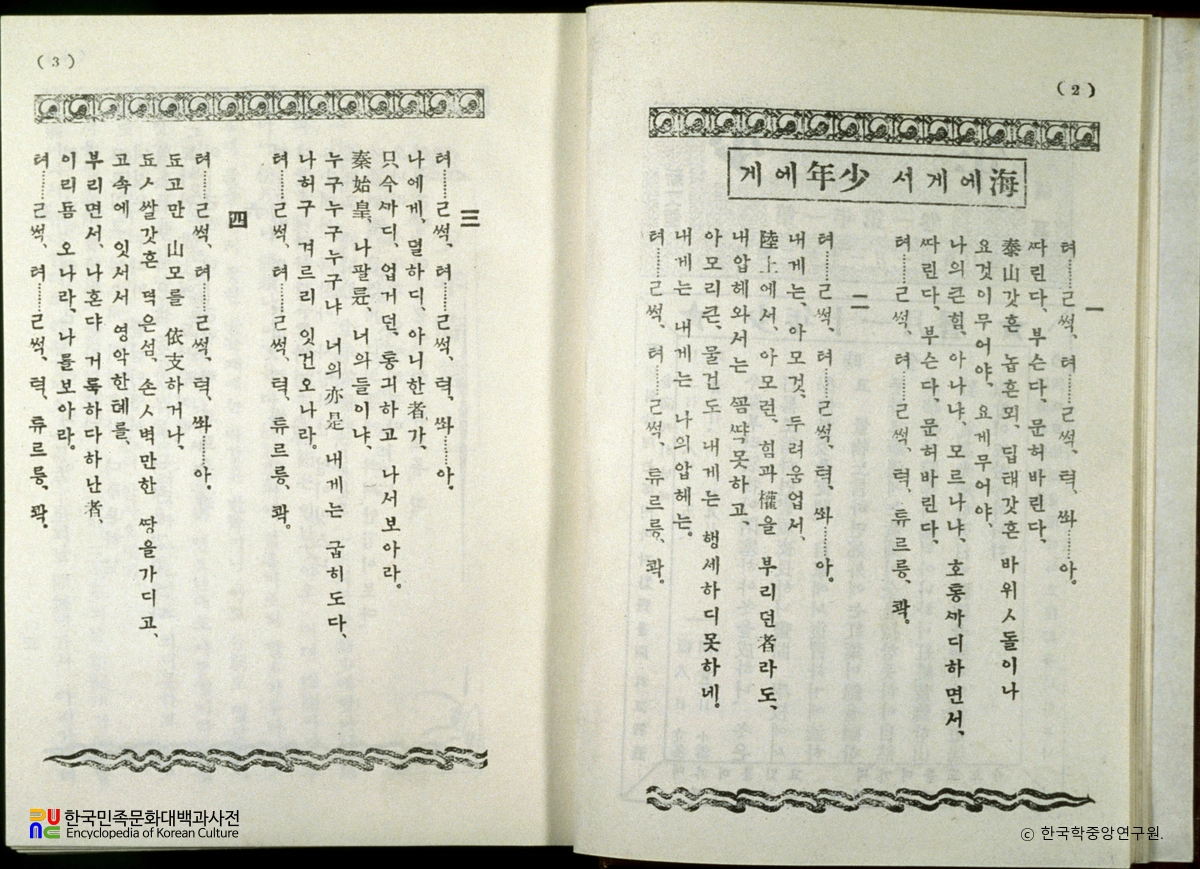 (2)
海에게서 少年에게
一
텨……ㄹ썩, 텨……ㄹ썩, 텩, 쏴……아.
ᄯᅡ린다, 부슨다, 문허바린다,
泰山갓흔 놉흔뫼, 딥태갓흔 바위ㅅ돌이나
요것이무어야, 요게무어야,
나의큰힘, 아나냐, 모르나냐, 호통ᄭᅡ디하면서,
ᄯᅡ린다, 부슨다, 문허바린다,
텨……ㄹ썩, 텨……ㄹ썩, 텩, 튜르릉, 콱.
二
텨……ㄹ썩, 텨……ㄹ썩, 텩, 쏴……아.
내게는, 아모것, 두려움업서,
陸上에서, 아모런, 힘과 權을 부리던者라도,
내압헤와서는 ᄭᅩᆷᄶᅡᆨ못하고,
아모리큰, 물건도 내게는 행세하디못하네.
내게는 내게는 나의압헤는.
텨……ㄹ썩, 텨……ㄹ썩, 텩, 튜르릉, 콱.
(3)
三
텨……ㄹ썩, 텨……ㄹ썩, 텩, 쏴……아.
나에게, 뎔하디, 아니한者가,
只今ᄭᅡ디, 업거던, 통긔하고 나서보아라.
秦始皇, 나팔륜, 너의들이냐,
누구누구누구냐 너의亦是 내게는 굽히도다,
나허구 겨르리 잇건오나라.
텨……ㄹ썩, 텨……ㄹ썩, 텩, 튜르릉, 콱.
四
텨……ㄹ썩, 텨……ㄹ썩, 텩, 쏴……아.
됴고만 山모를 依支하거나,
됴ㅅ쌀갓흔 뎍은섬, 손ㅅ벽만한 ᄯᅡᆼ을가디고,
고속에 잇서서 영악한톄를,
부리면서, 나혼댜 거룩하다하난者,
이리둄 오나라, 나를보아라.
텨……ㄹ썩, 텨……ㄹ썩, 텩, 튜르릉, 콱.
한국민족문화대백과사전
Encyclopedia of Korean Culture
© 한국학중앙연구원.